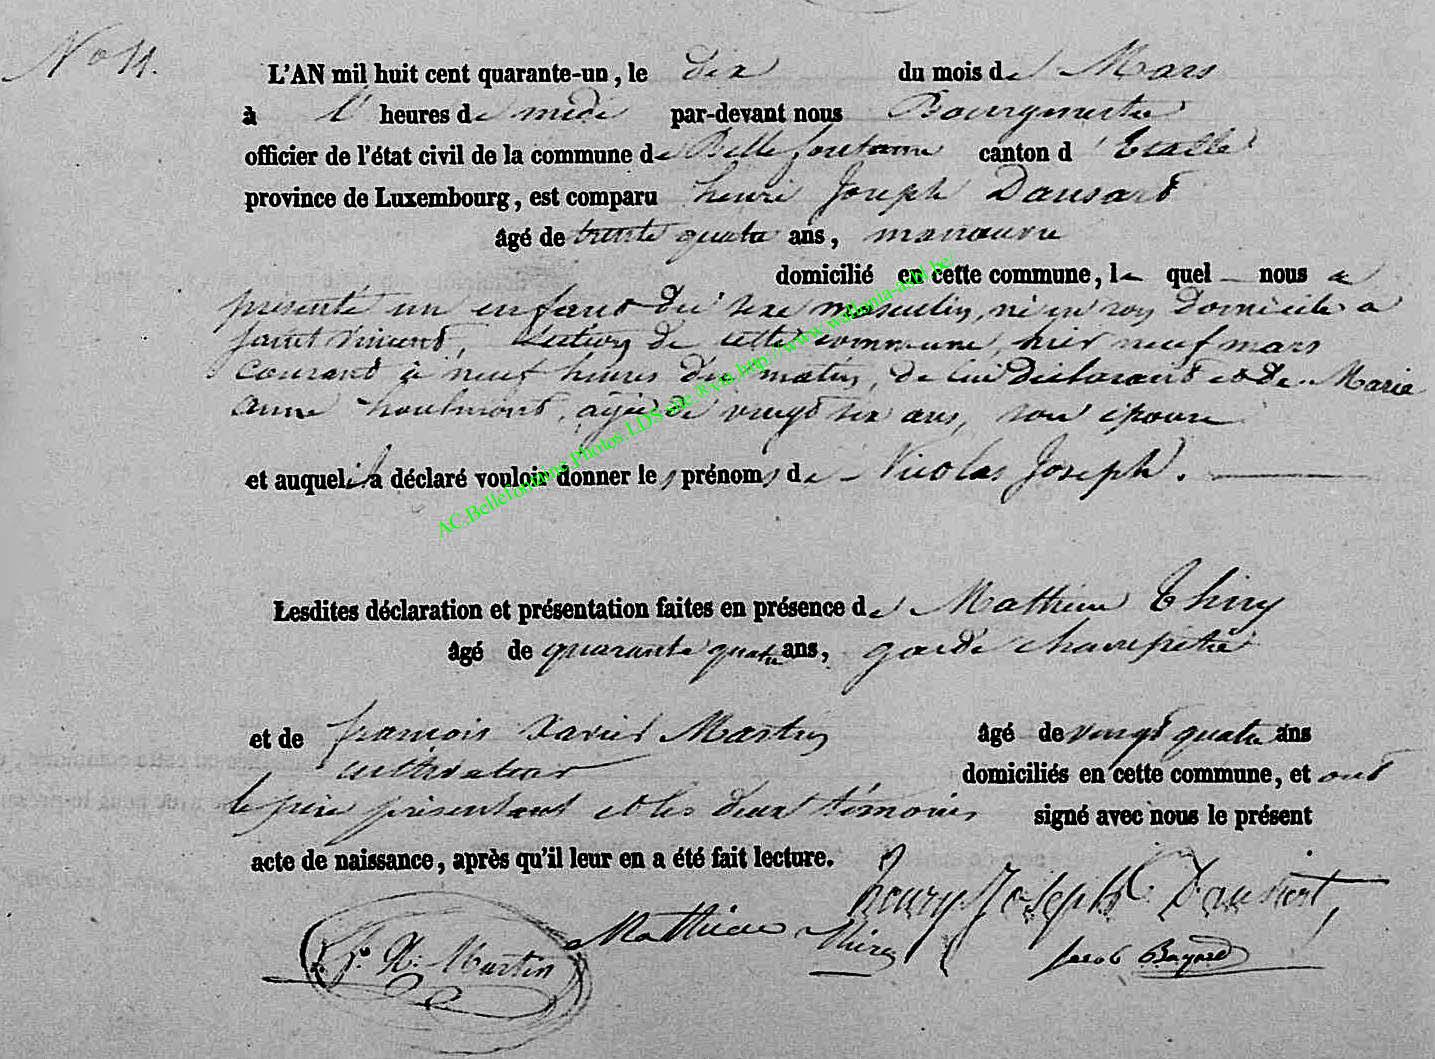 N° 11.
L'AN mil huit cent quarante-un, le dix du mois de Mars
à l' heures de midi par-devant nous Bourgmestre
officier de l'état civil de la commune de Bellefontaine canton d'Etalle
province de Luxembourg, est comparu henri Joseph Dansart
âgé de trente quatre ans, manœuvre
domicilié en cette commune, le quel nous a
présenté un enfant du sexe masculin, né en son domicile a
saint vincent, section de cette commune, hier neuf mars
courant à neuf heures du matin, de lui déclarant et de Marie
anne houlmont, agée de vingt six ans, son épouse
et auquel il a déclaré vouloir donner les prénoms de Nicolas Joseph.
AC.Bellefontaine.Photos.LDS site. http://www.wallonia-asbl.be/
Lesdites déclaration et présentation faites en présence de Mathieu Thiry
âgé de quarante quatre ans, garde champetre
et de francois Xavier Martin âgé de vingt quatre ans
cultivateur domiciliés en cette commune, et ont
le père présentant et les deux témoins signé avec nous le présent
acte de naissance, après qu'il leur en a été fait lecture.
henry Joseph Dansart,
F. X. Martin Mathieu Thiry Jacob Bayard